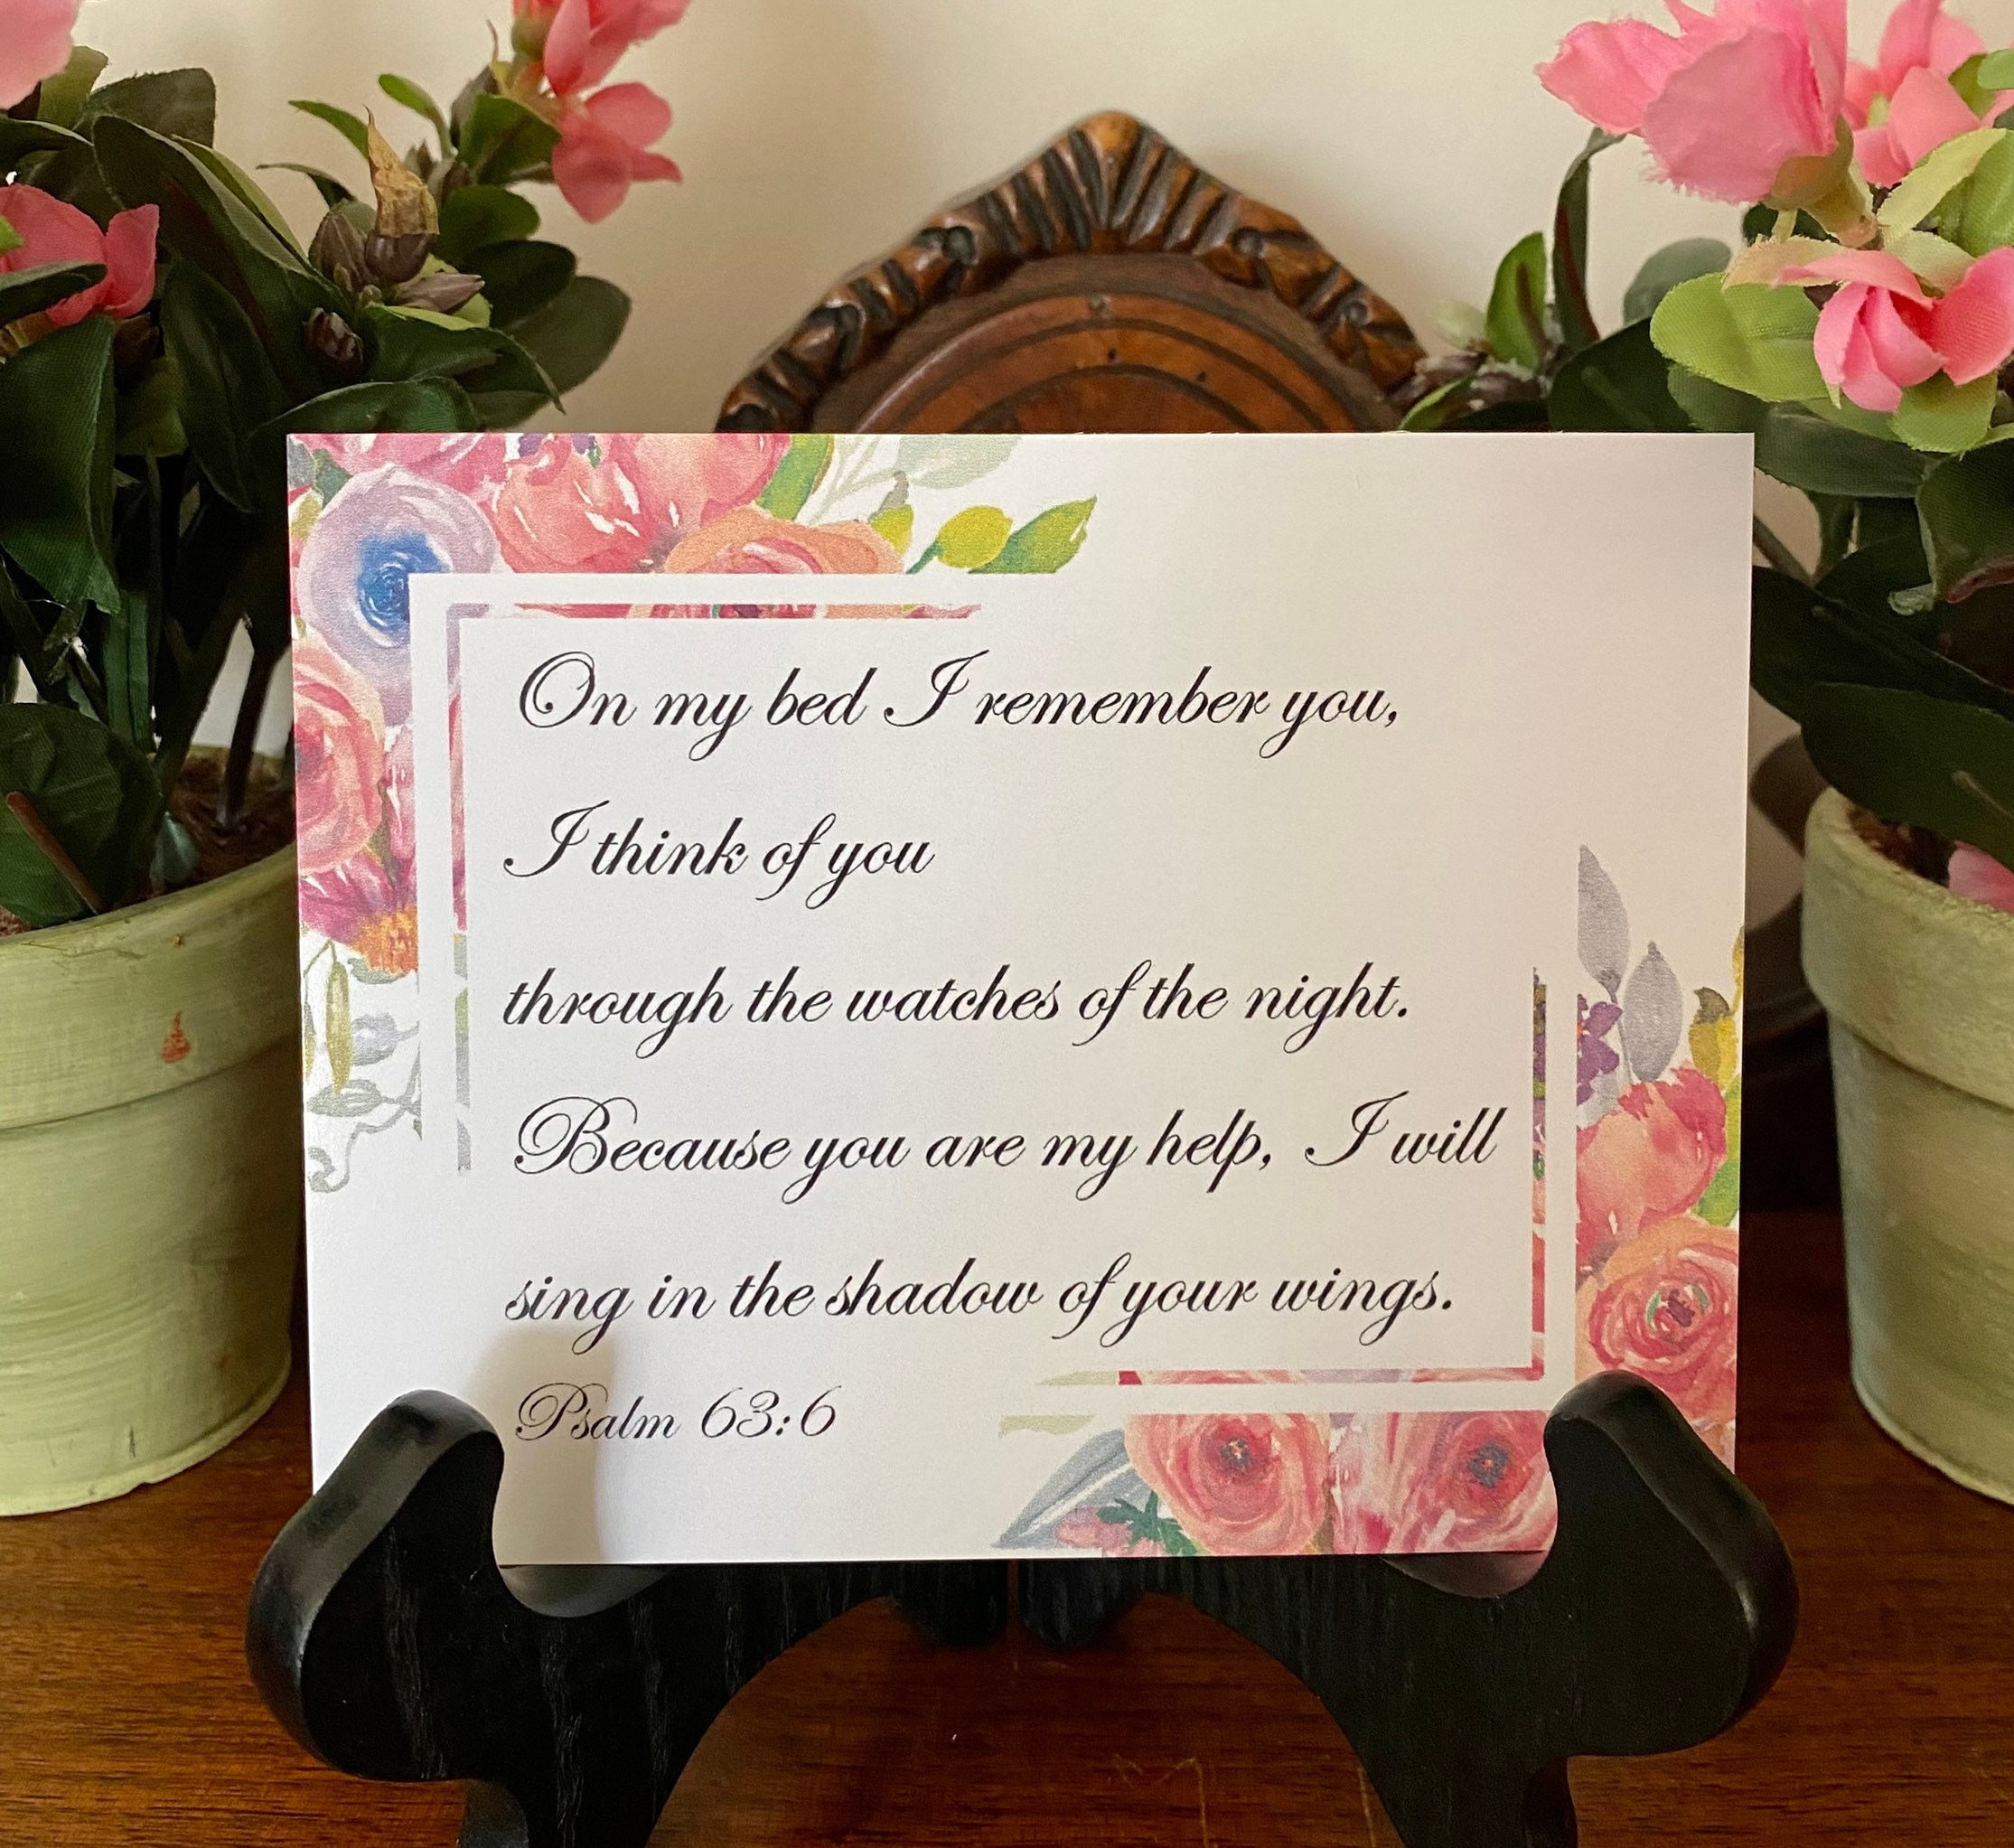 On my bed I remember you,
I think of you
through the watches of the night.
Because you are my help, I will
sing in the shadow of your wings.
Psalm 63:6